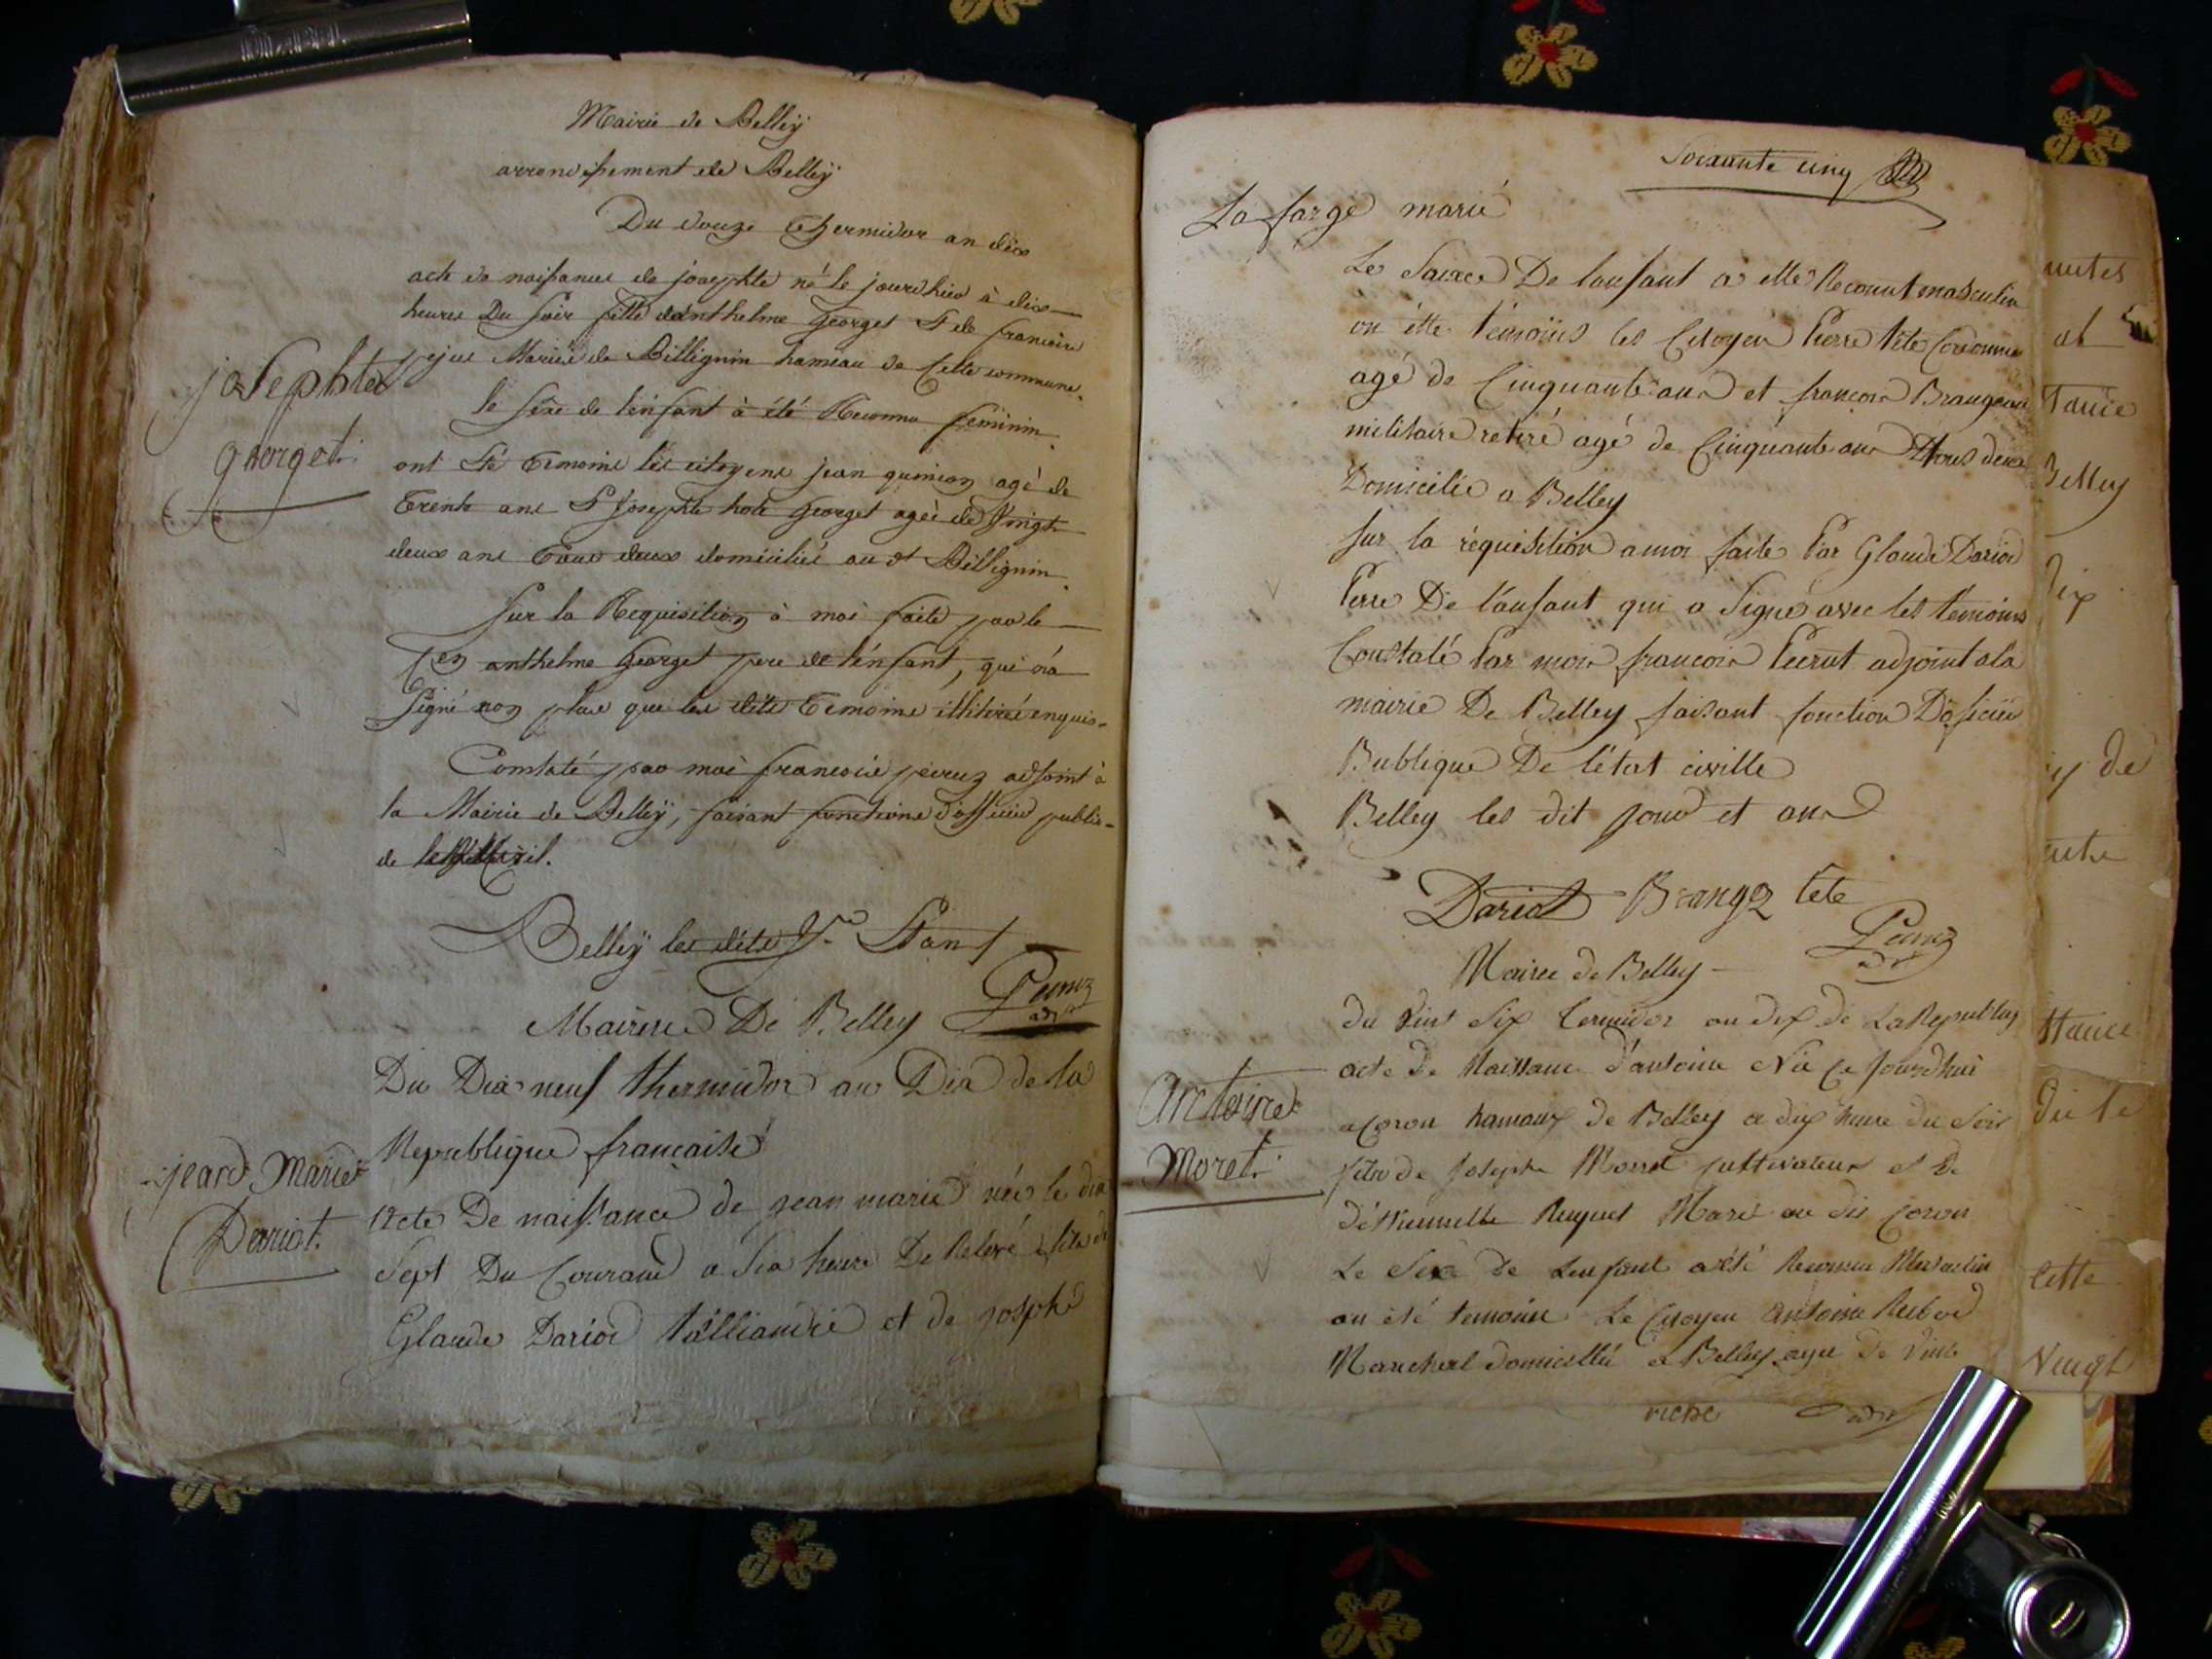 Mairie de Belleÿ
arrondissement de Belleÿ
Du douze Thermidor an dix
acte de naissance de josephte né le jourdhier à dix
heures Du soir fille d'anthelme georget & de francoise
pejus Mariés de Billignin hameau de cette commune.
josephte
georget.
le sexe de l'enfant à été Reconnu féminin.
ont été témoins les citoyens jean quinion agé de
Trente ans & Josephte hote georget agée de Vingt
deux ans Tous deux domiciliés au dt Billignin.
Sur la Requisition à moi faite par le
Cen anthelme georget pere de l'énfant, qui n'a
Signé non plus que les dits témoins illitéré enquis.
Constaté par moi francois peruz adjoint à
la Mairie de Belleÿ, faisant fonctions d'officier public
de
Belleÿ les dits Jr & an
Peruz
adjt
Mairie De Belley
Du Dix neuf thermidor an Dix de la
Republique francaise
jean Marie
Dariot.
Acte De naissance de jean marie née le dix
Sept Du Courant a six heure De Relevé fils de
Glaude Dariod talliandié et de josphe
Soixante cinq
La farge marié
Le Saixe De lanfant a etté Reconnut masculin
on étte témoins les Citoyen Pierre tête Cordonnie
agé de Cinquante ans et francois Brangeau
militaire retiré agé de Cinquante ans tous deux
Domicilie a Belley
sur la réquisition a moi faite Par Glaude Dariod
Pere De l'anfant qui a Signé avec les témoins
Constaté Par moi francois Peerut adjoint a la
mairie De Belley faisant fonction Dofficier
Bublique De l'état civille
Belley les dit jour et an
Dariot Brangez tete
Peruz
adjt
Mairie de Belley
du vint Six termidor an dix de La Republiq
acte de Naissance d'antoine Née ce jourdhui
Antoine
Moret.
a Coron hamaux de Belley a dix heure du Soir
fils de Joseph Morret cultivateur et de
d'étiennette Ruquet Marie au dit Coron
Le Sexe de Lenfant a été Reconnu Masculin
on été temoins Le Citoyen antoine Rubod
Marechal domicillié a Belley agée de Vint
nutes
et
Tance
Belley
dix
y de
tance
dite
cette
Vingt